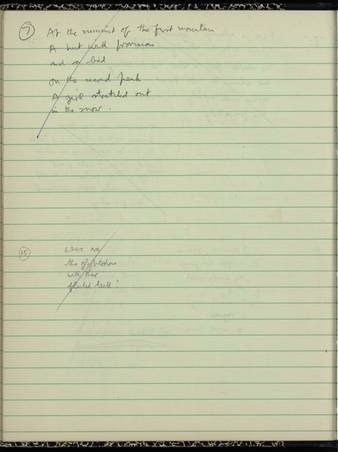 (7) At the summit of the first mountain
A hut with provisions
and a bed
on the second peak
A girl stretched out
in the snow.
(15)
the
with her